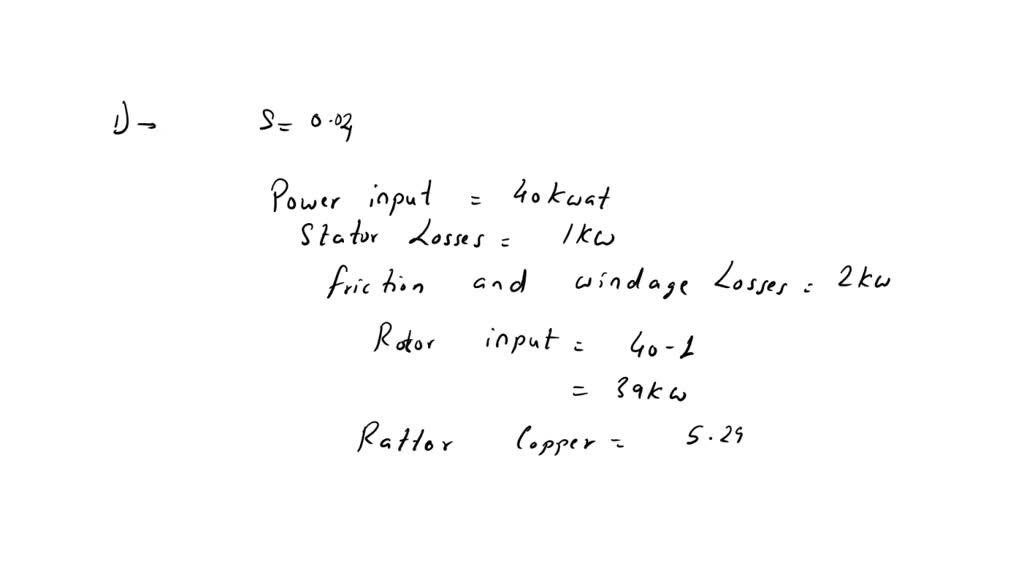 1) →   S = 0.04
Power input = 40kwat
Stator Losses = 1kw
friction and windage Losses = 2kw
Rotor input = 40-1
= 39kw
Rattor Copper =